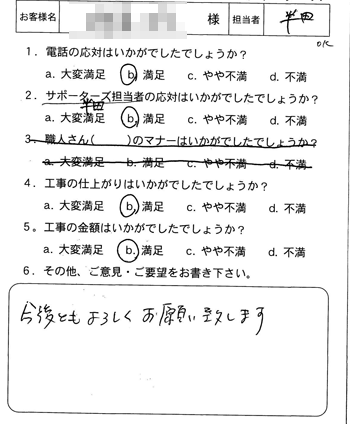 お客様名 様 担当者 半田
OK
1．電話の応対はいかがでしたでしょうか？
a. 大変満足 b. 満足 c. やや不満 d. 不満
2．サポーターズ担当者の応対はいかがでしたでしょうか？
半田
a. 大変満足 b. 満足 c. やや不満 d. 不満
3．職人さん( )のマナーはいかがでしたでしょうか？
a. 大変満足 b. 満足 c. やや不満 d. 不満
4．工事の仕上がりはいかがでしたでしょうか？
a. 大変満足 b. 満足 c. やや不満 d. 不満
5。工事の金額はいかがでしたでしょうか？
a. 大変満足 b. 満足 c. やや不満 d. 不満
6．その他、ご意見・ご要望をお書き下さい。
今後ともよろしくお願い致します